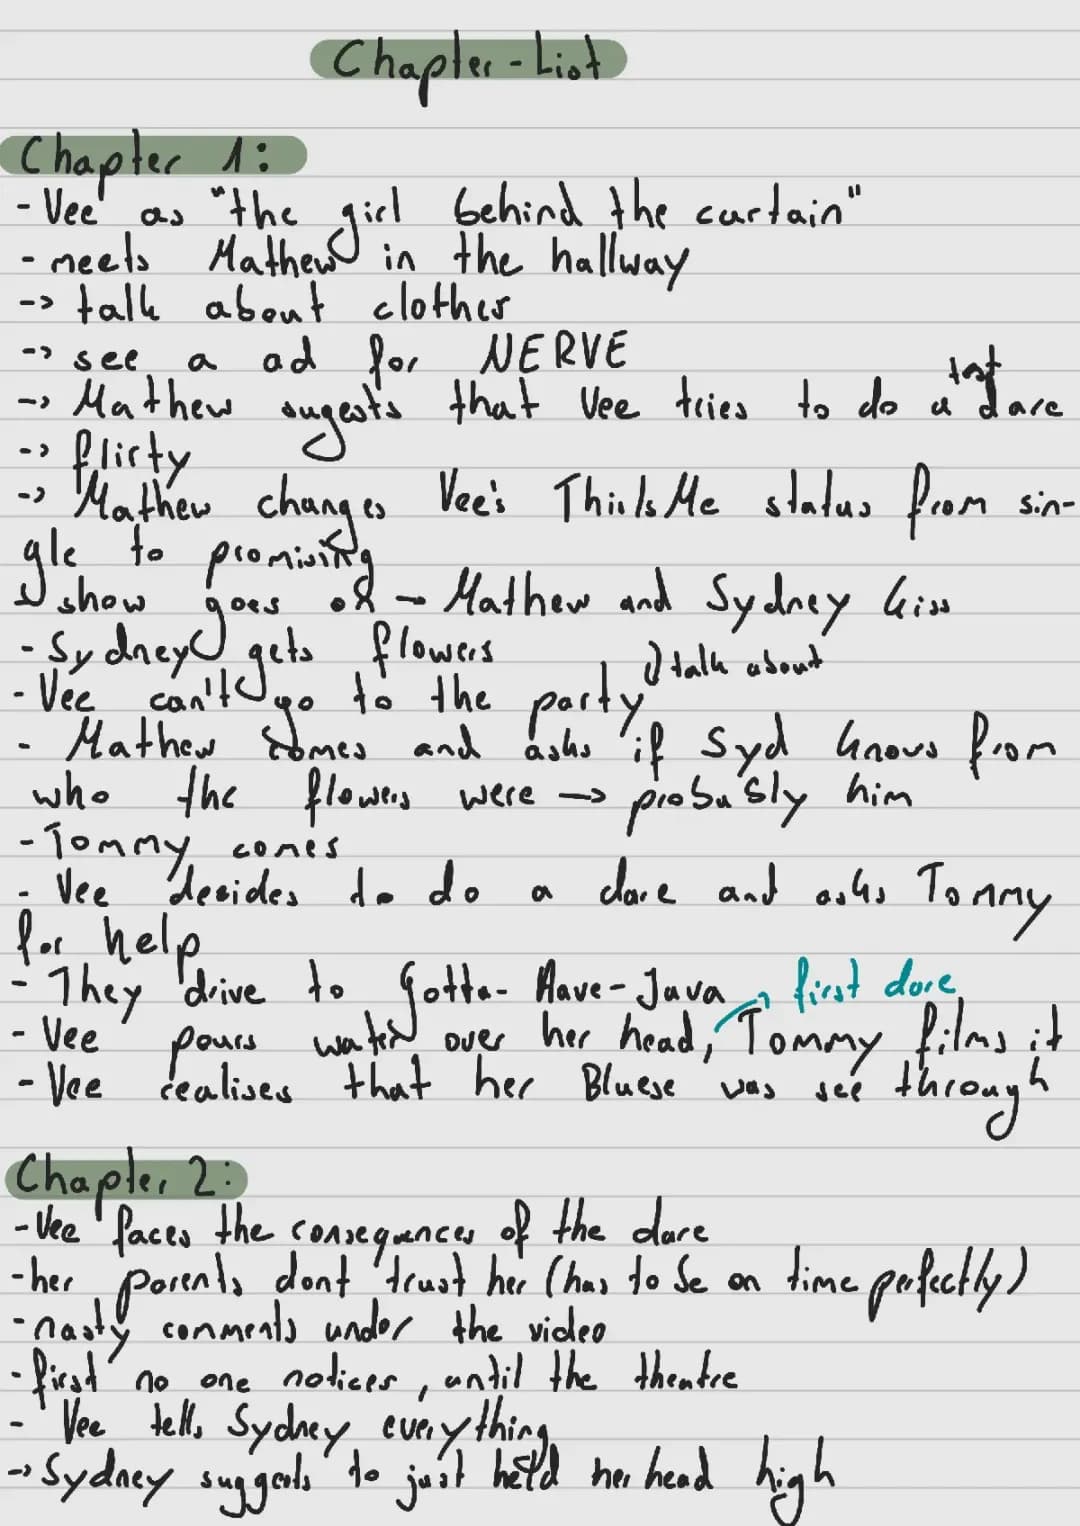 Chapter-List
Chapter 1:
- Vee as "the girl behind the curtain"
- meets Mathew in the hallway
-> talk about clothes
-> see a ad for NERVE
-> Mathew sugests that Vee tries to do a test dare
-> flirty
-> Mathew changes Vee's ThisIsMe status from sin-
gle to promising
↳ show goes on - Mathew and Sydney kiss
- Sydney gets flowers
- Vee can't go to the party ↓ talk about
- Mathew comes and asks if Syd knows from
who the flowers were -> probably him
- Tommy comes
- Vee decides to do a dare and asks Tommy
for help
- They drive to Gotta-Have-Java
- Vee pours water over her head, Tommy films it -> first dare
- Vee realises that her Bluese was see through
Chapter 2:
- Vee faces the consequences of the dare
- her parents dont trust her (has to be on time perfectly)
- nasty comments under the video
- first no one notices, until the theatre
- Vee tells Sydney everything
-> Sydney suggests to just held her head high